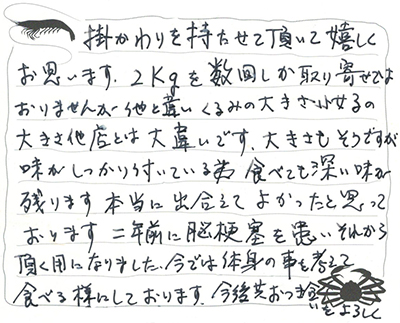 掛かわりを持たせて頂いて嬉しく
お思います.2Kgを数回しか取り寄せでは
おりませんが他と違いくるみの大きさ
大きさ他店とは大違いです、大きさもそうですが
味がしっかり付いている為 食べても深い味が
残ります 本当に出合えてよかったと思って
おります 二年前に脳梗塞を患いそれから
頂く用になりました、今では体身の事を考えて
食べる様にしております、今後共おつき合いを
よろしく